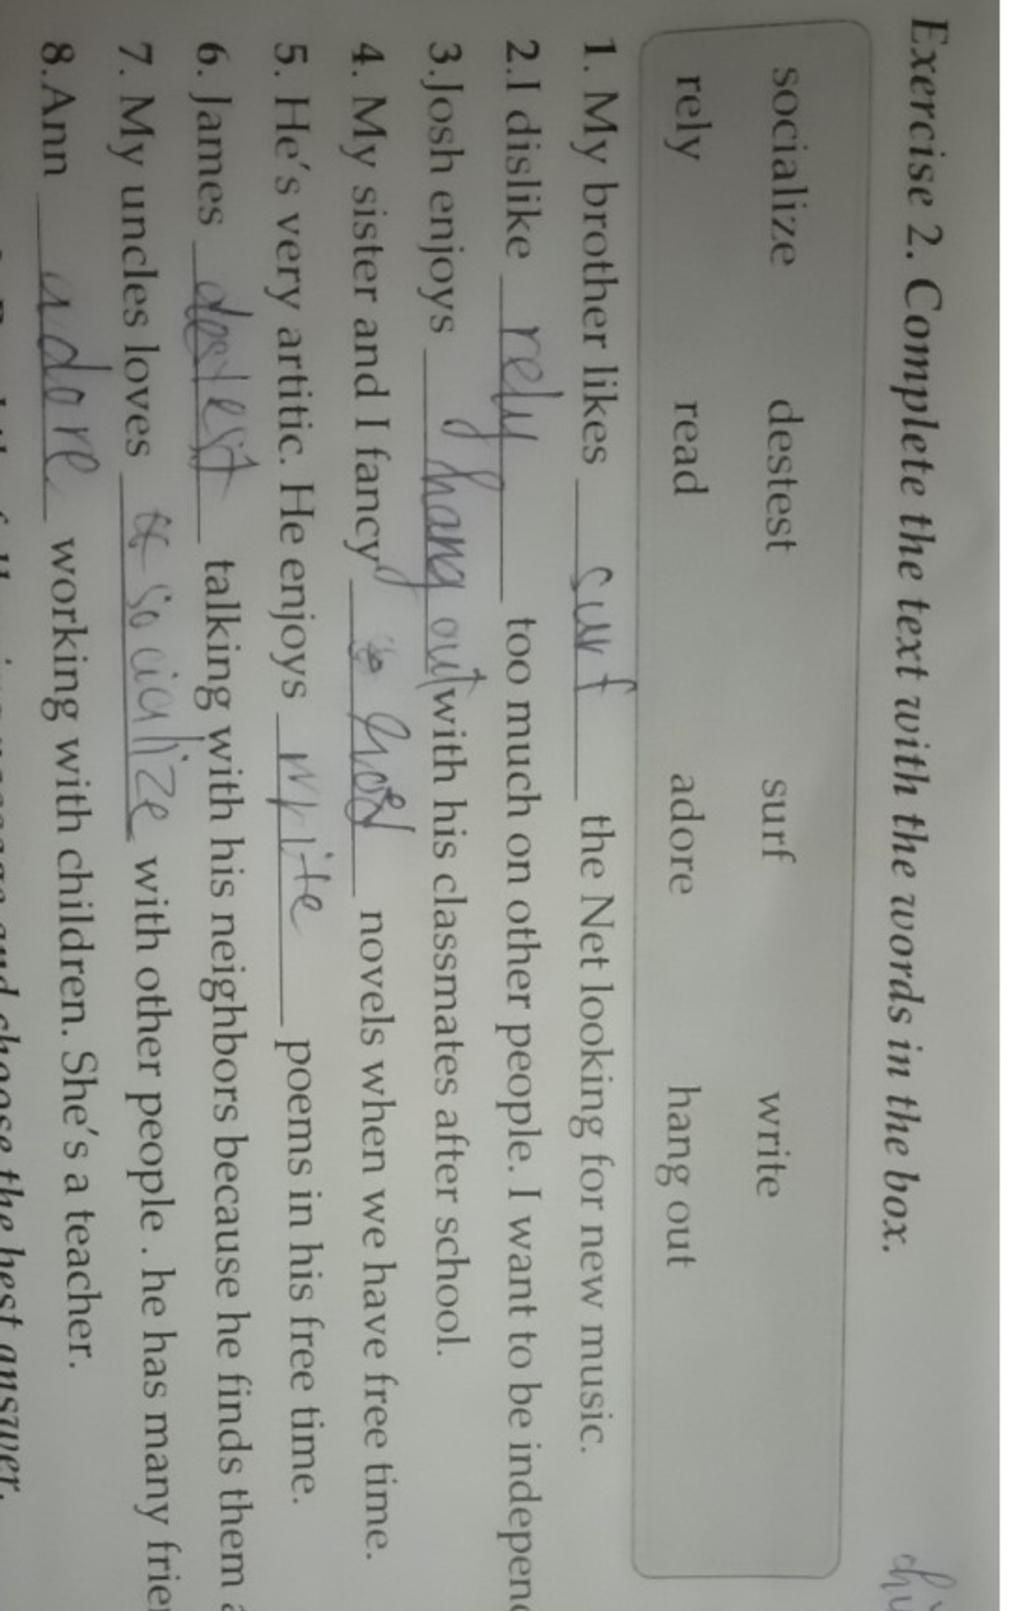 Exercise 2. Complete the text with the words in the box.
socialize destest surf write
rely read adore hang out
1. My brother likes surf the Net looking for new music.
2.I dislike rely too much on other people. I want to be independ
3.Josh enjoys hang out with his classmates after school.
4. My sister and I fancy novels when we have free time.
5. He's very artitic. He enjoys write poems in his free time.
6. James destest talking with his neighbors because he finds them a
7. My uncles loves socialize with other people . he has many frien
8.Ann adore working with children. She's a teacher.
and choose the best answer.